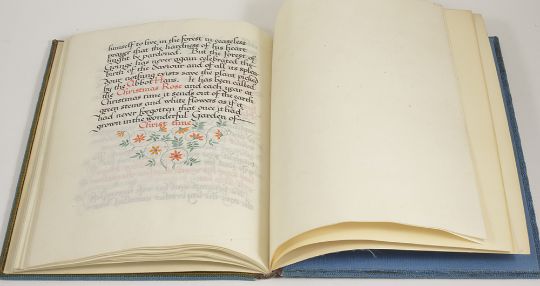 himself to live in the forest in ceaseless
prayer that the hardness of his heart
might be pardoned. But the forest of
Goinge has never again celebrated the
birth of the Saviour and of all its splen
dour nothing exists save the plant picked
by the Abbot Hans. It has been called
the Christmas Rose and each year at
Christmas time it sends out of the earth
green stems and white flowers as if it
had never forgotten that once it had
grown in the wonderful Garden of
Christ time